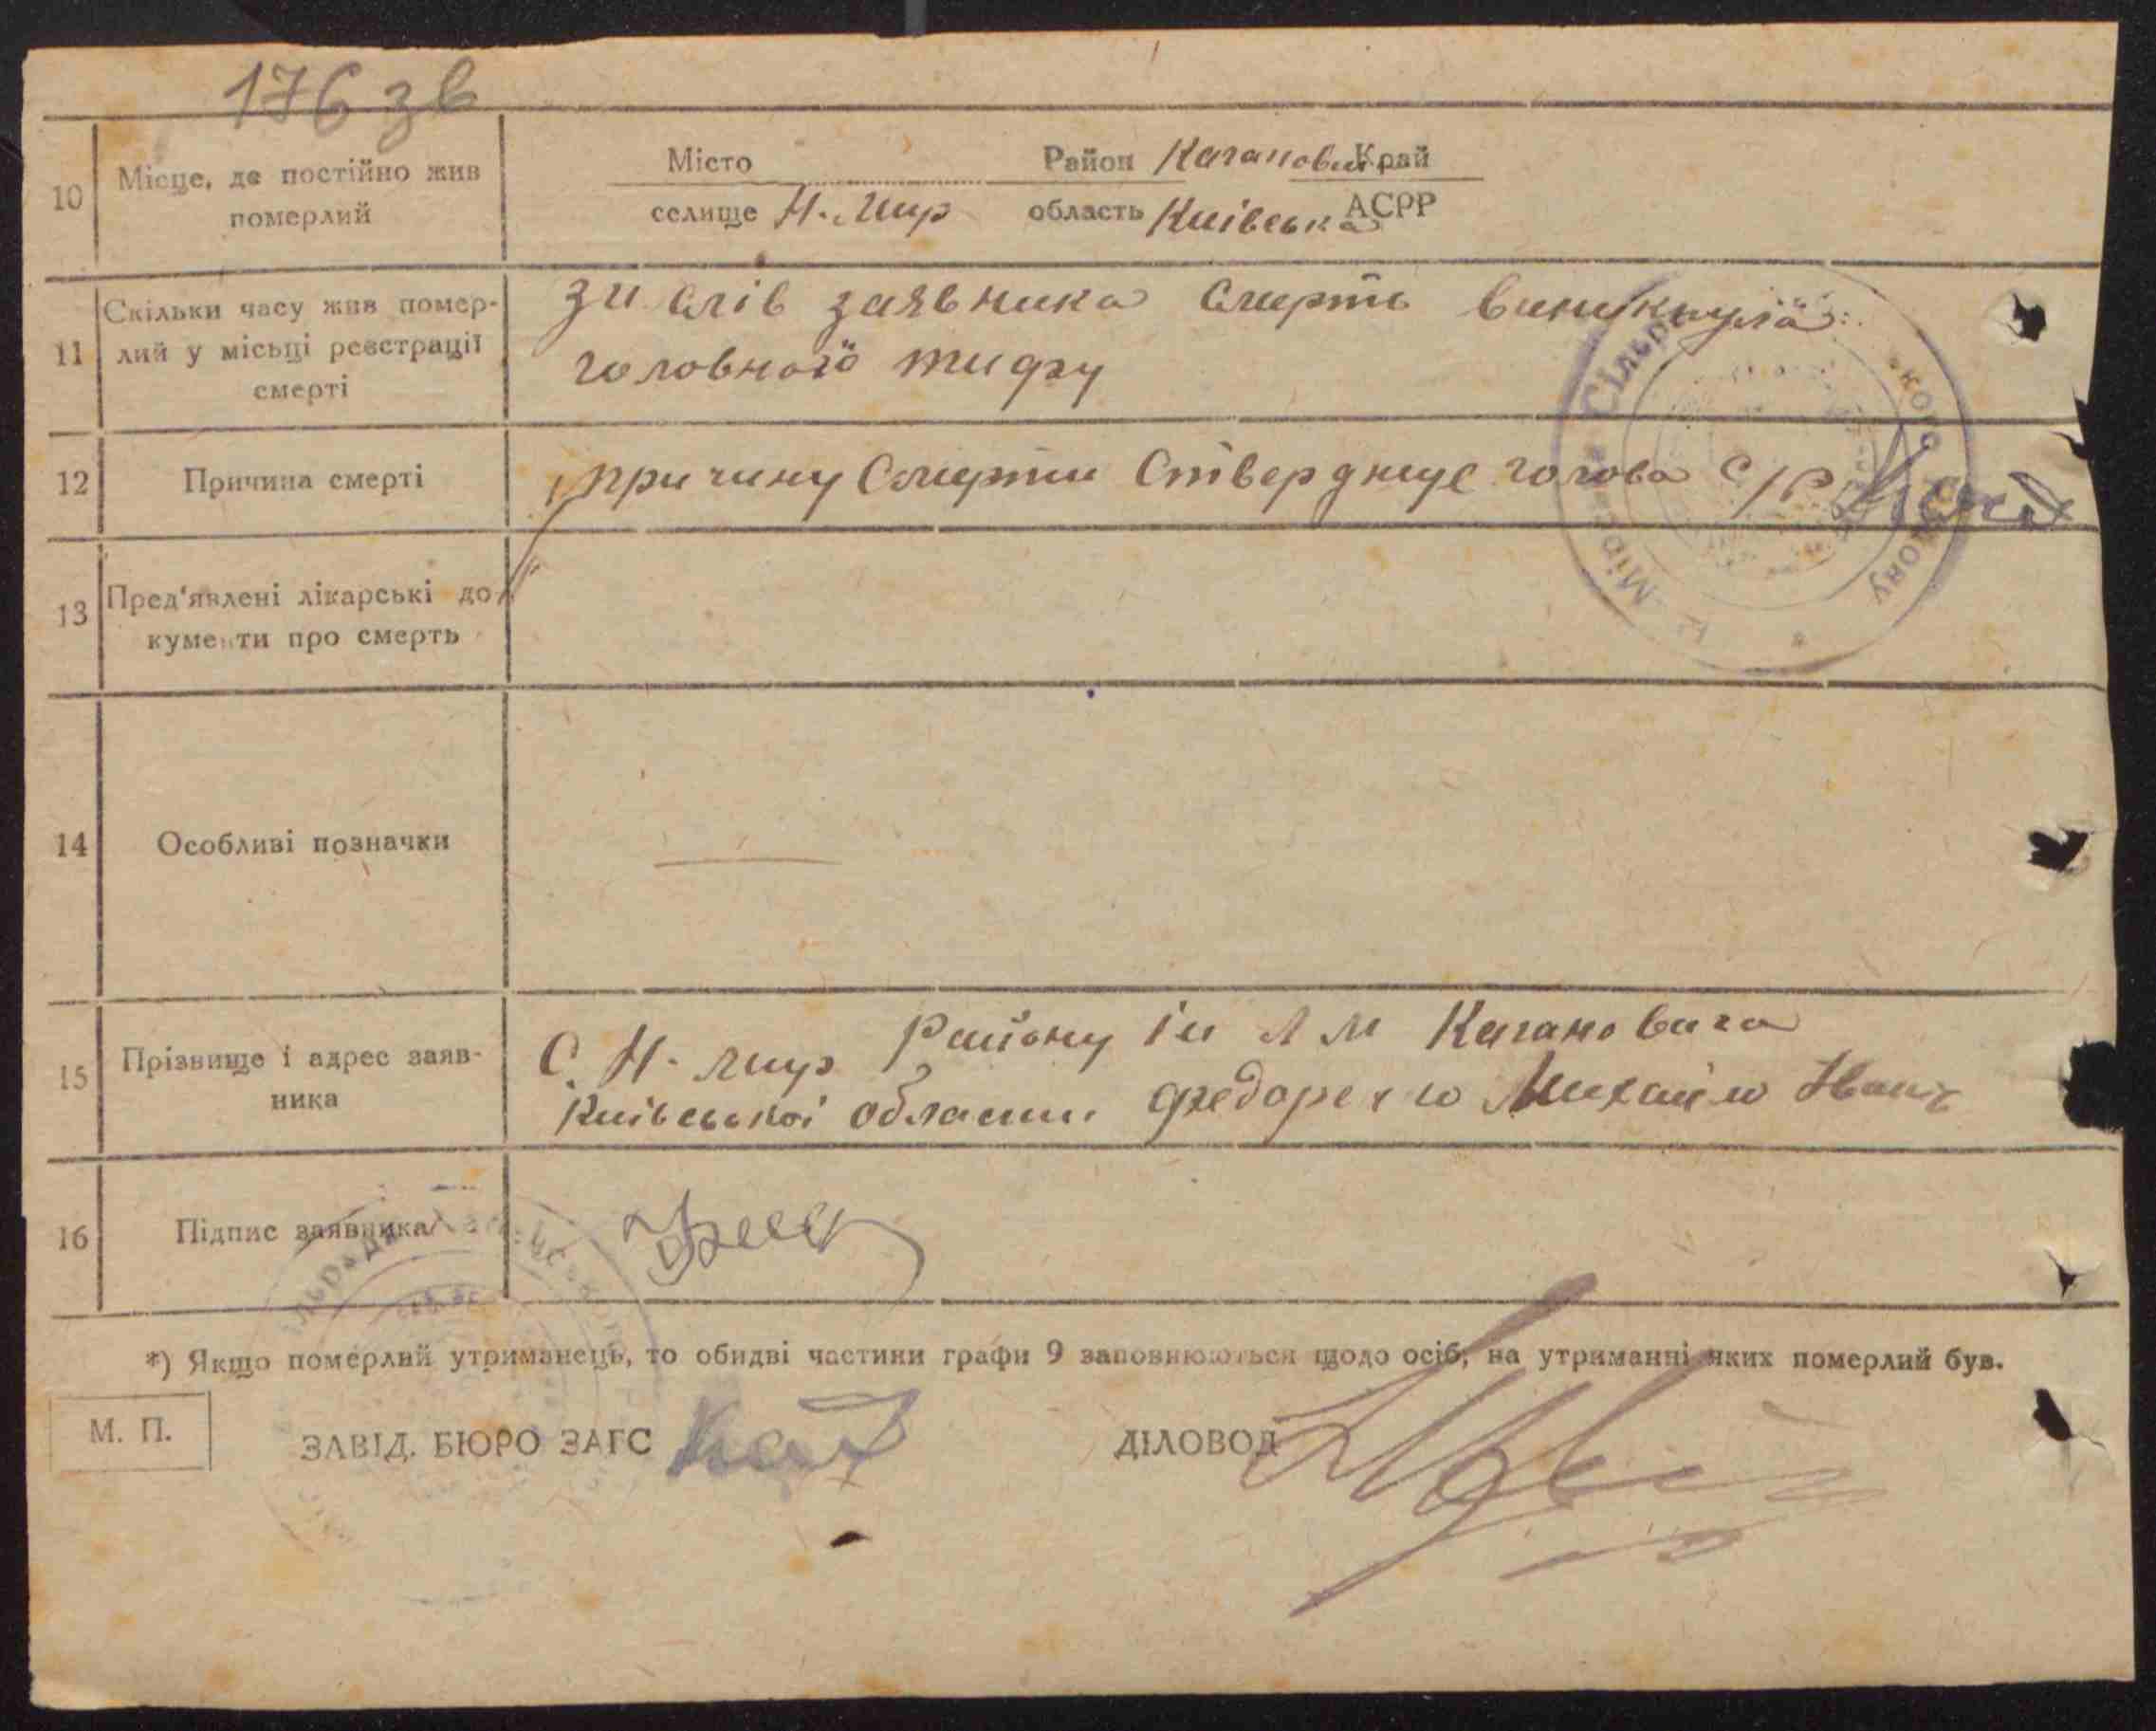 176 зв
10 Місце, де постійно жив померлий
Місто Район Каганович Край
селище Н. Мир область Київська АСРР
11 Скільки часу жив помер-
лий у місьці реєстрації
смерті
зи слів заявника смерть виникнула
головного тифу
12 Причина смерті
причину Смерти Стверджує голова с/р
13 Пред'явлені лікарські до
кументи про смерть
14 Особливі позначки
15 Прізвище і адрес заяв-
ника
С. Н-мир Району ім Л М Кагановича
Київської области Федоренко Михайло Іван
16 Підпис заявника
*) Якщо померлий утриманець, то обидві частини графи 9 заповнюються щодо осіб, на утриманні яких померлий був.
М. П.
ЗАВІД. БЮРО ЗАГС ДІЛОВОД